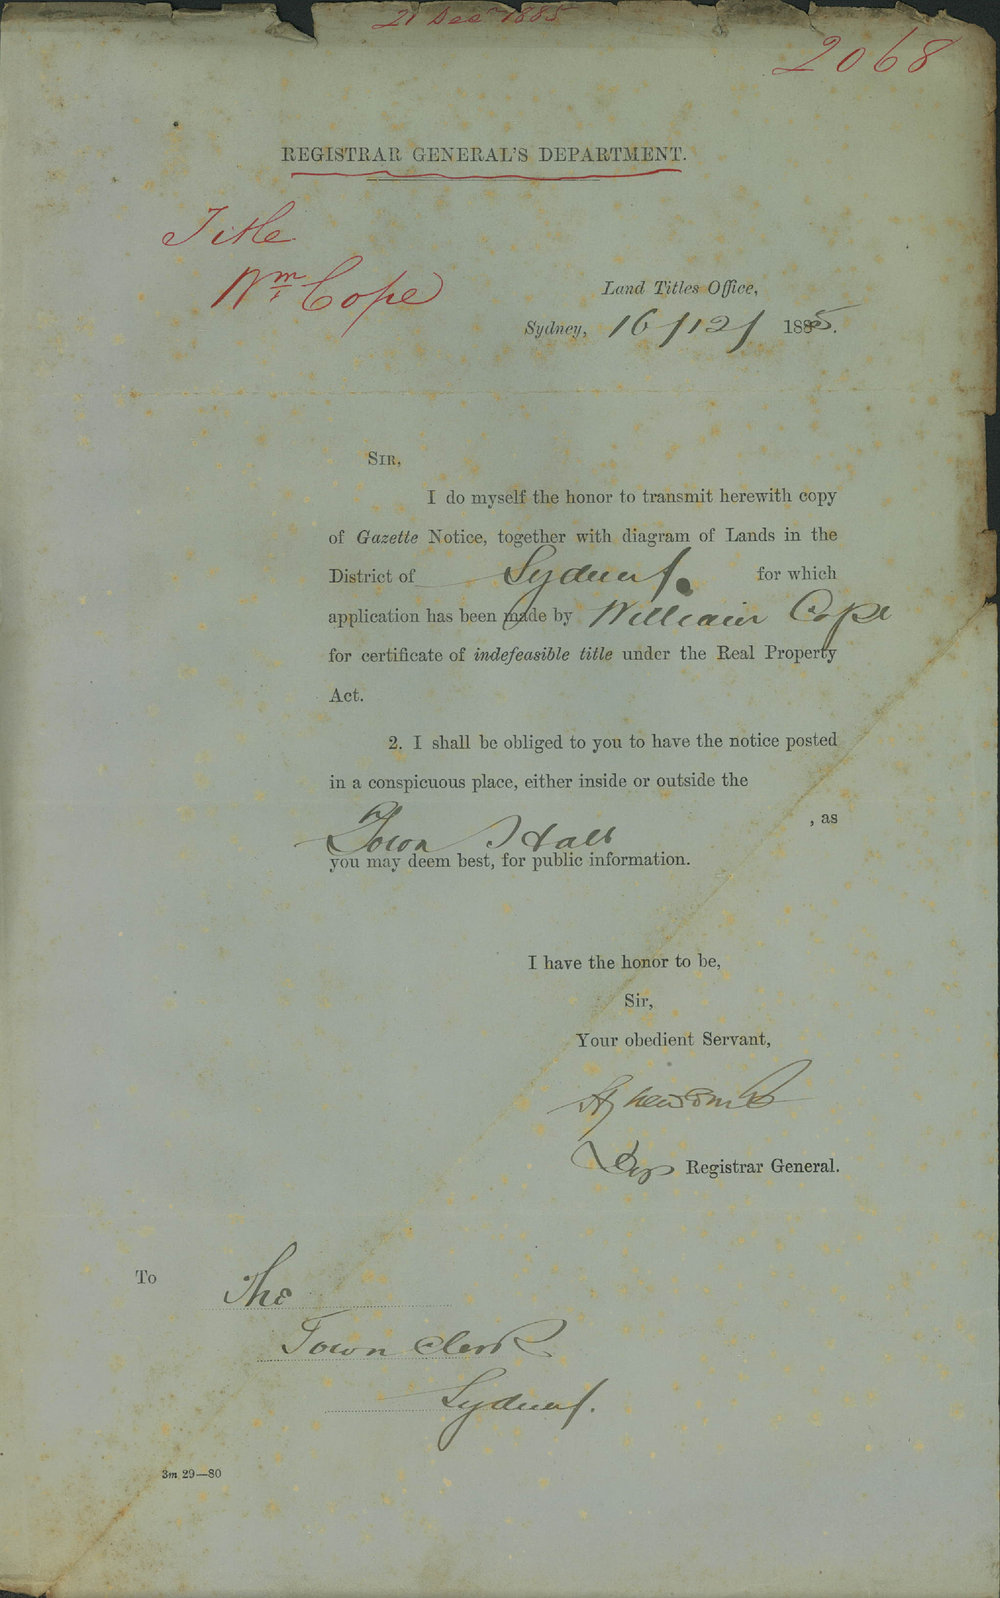 21 Decr 1885
2068
REGISTRAR GENERAL'S DEPARTMENT.
Title
Wm Cope
Land Titles Office,
Sydney, 16/12/ 1885.
SIR,
I do myself the honor to transmit herewith copy
of Gazette Notice, together with diagram of Lands in the
District of Sydney. for which
application has been made by William Cope
for certificate of indefeasible title under the Real Property
Act.
2. I shall be obliged to you to have the notice posted
in a conspicuous place, either inside or outside the
Town Hall , as
you may deem best, for public information.
I have the honor to be,
Sir,
Your obedient Servant,
Newcomb
Dep Registrar General.
To The
Town Clerk
Sydney.
3m 29—80